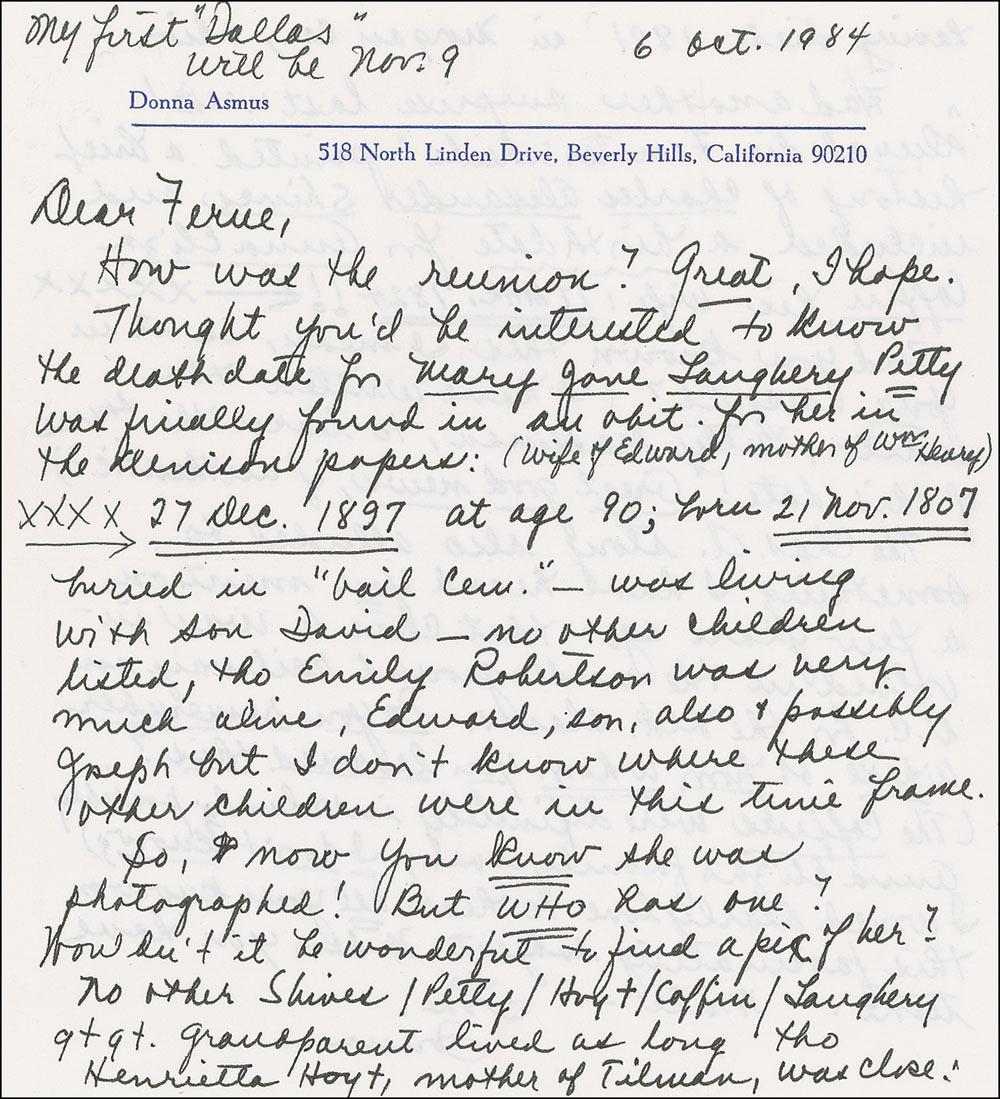 My first "Dallas"
will be Nov. 9
6 Oct. 1984
Donna Asmus
518 North Linden Drive, Beverly Hills, California 90210
Dear Ferne,
How was the reunion? Great, I hope.
Thought you'd be interested to know
the death date for Mary Jane Laughery Petty
was finally found in an obit. for her in
the Denison papers: (wife of Edward, mother of Wm. Henry)
XXXX 27 Dec. 1897 at age 90; born 21 Nov. 1807
buried in "Vail Cem." — was living
with son David — no other children
listed, tho Emily Robertson was very
much alive, Edward, son, also & possibly
Joseph but I don't know where these
other children were in this time frame.
So, now you know she was
photographed! But WHO has one?
Wouldn't it be wonderful to find a pic of her?
No other Shives / Petty / Hoyt / Coffin / Laughery
gt gt. grandparent lived as long tho
Henrietta Hoyt, mother of Tilman, was close.